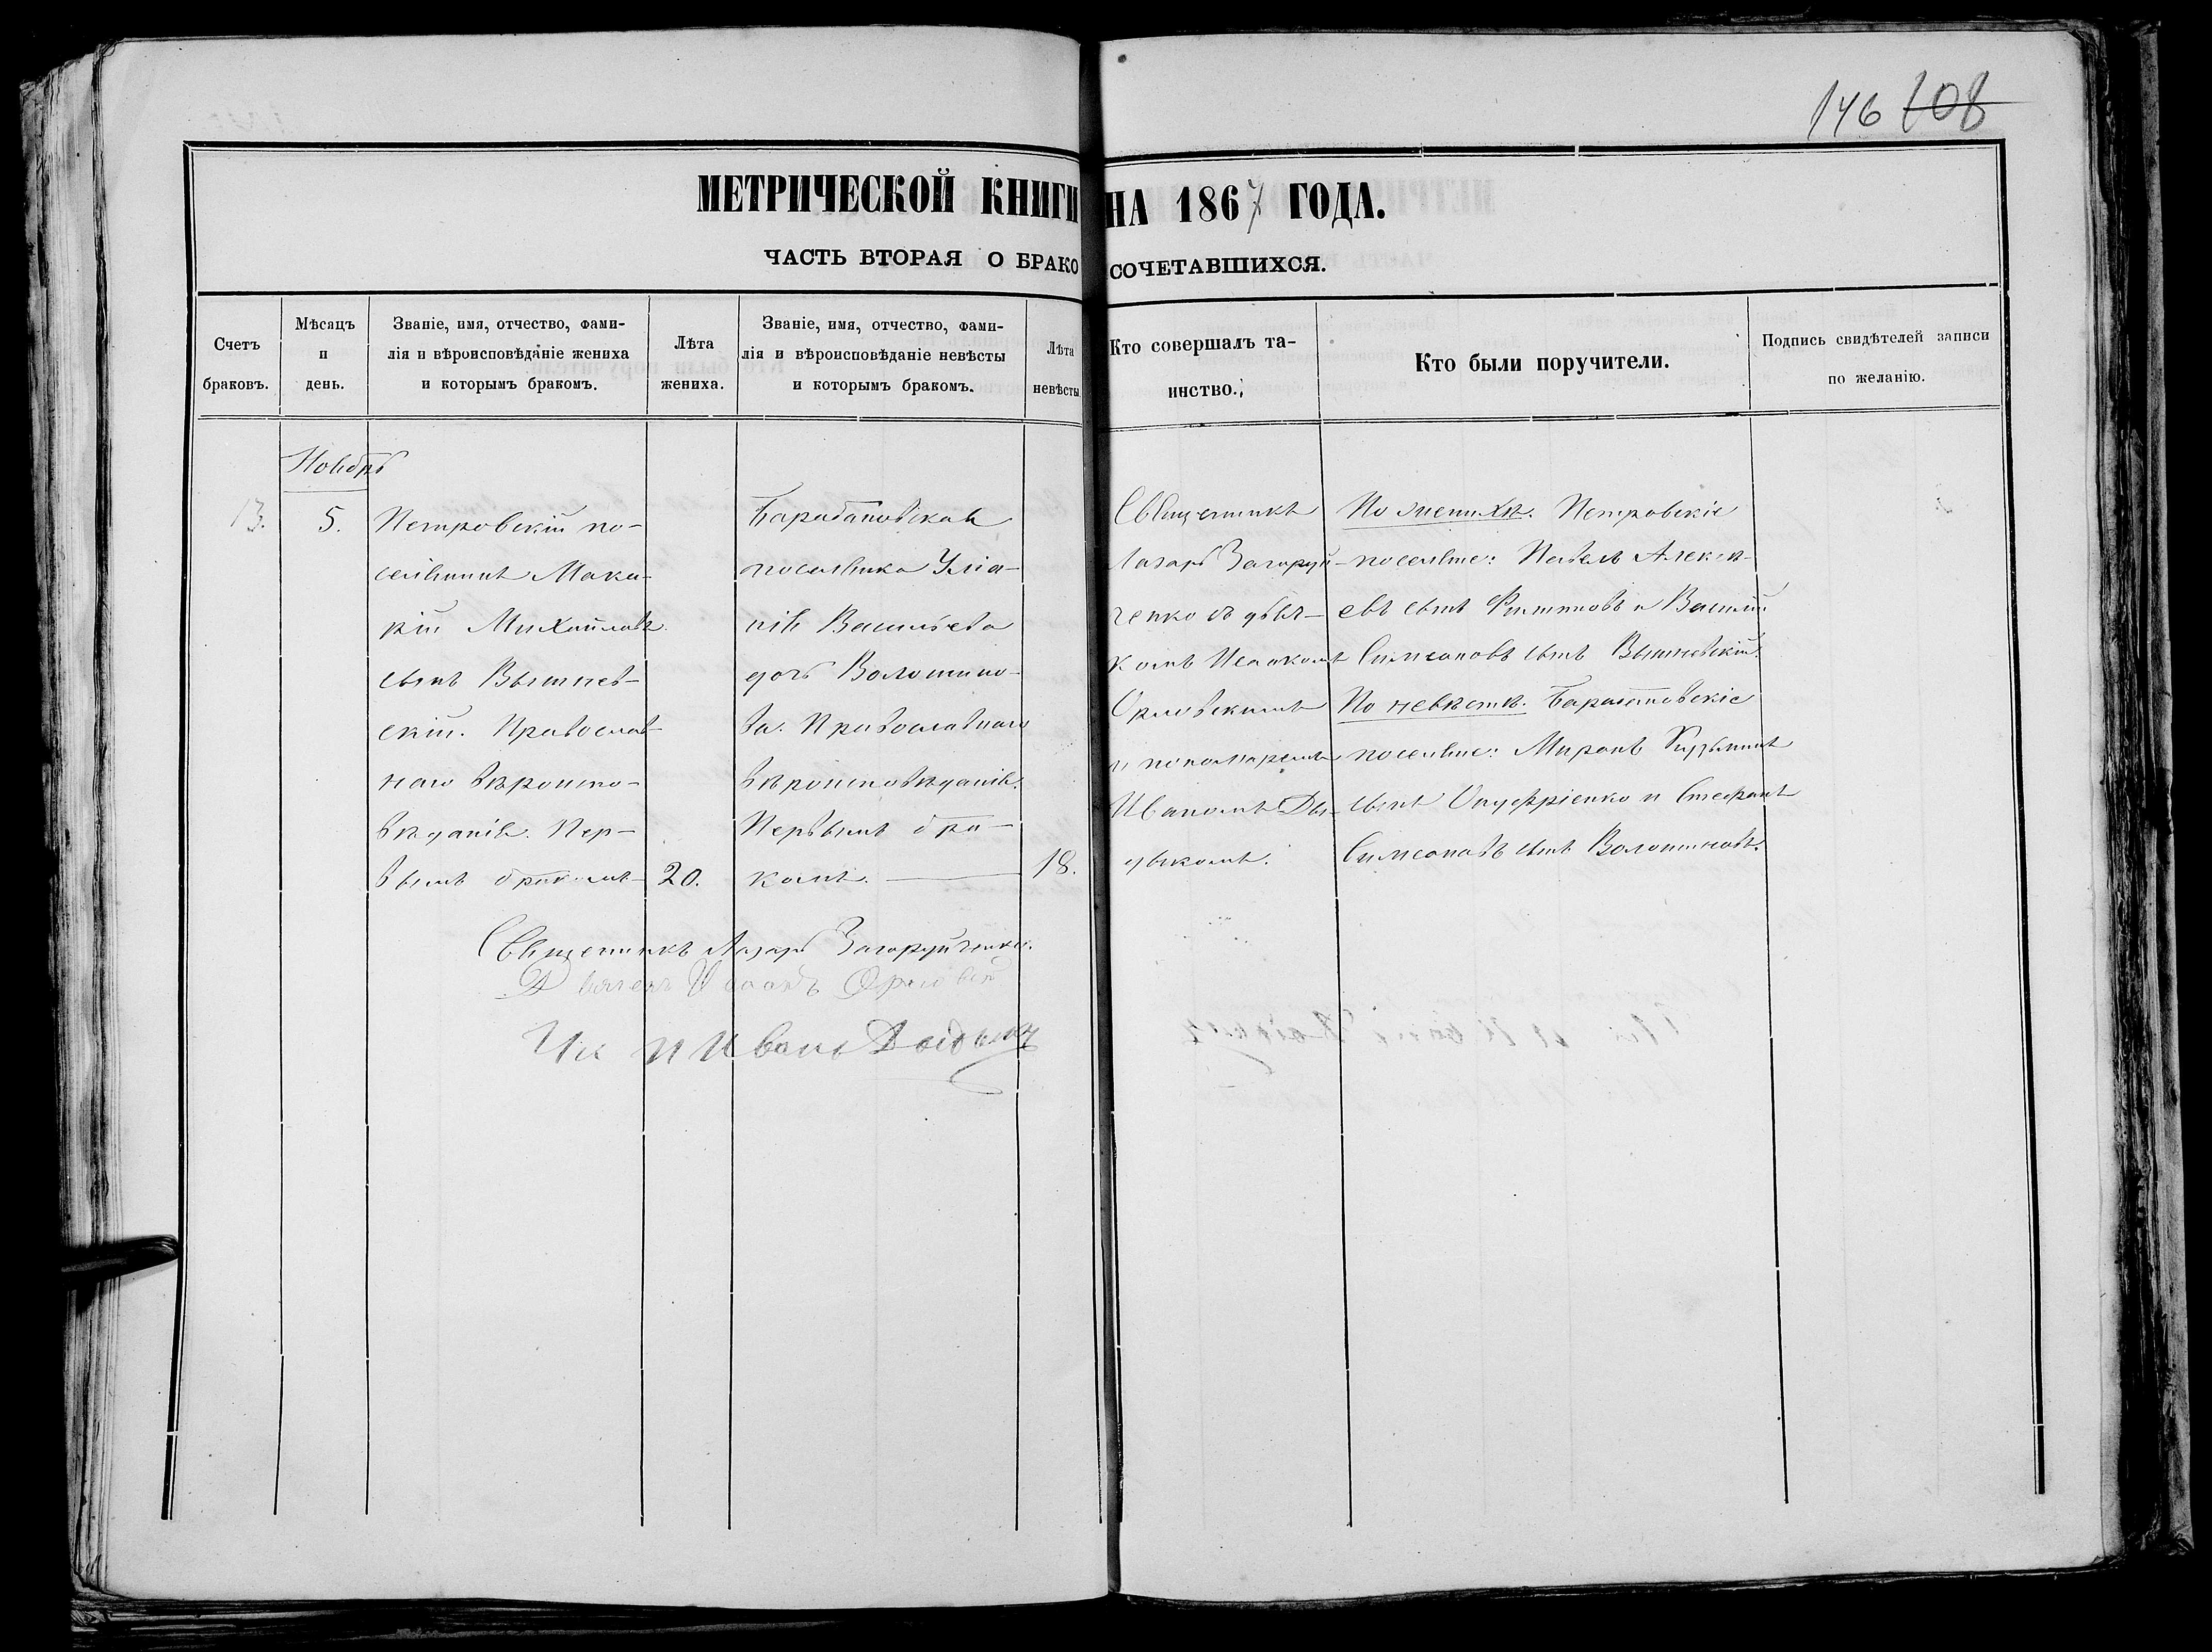 146 108
МЕТРИЧЕСКОЙ КНИГИ НА 1867 ГОДА.
ЧАСТЬ ВТОРАЯ О БРАКОСОЧЕТАВШИХСЯ.
Счетъ
браковъ.
Мѣсяцъ
и
день.
Званіе, имя, отчество, фами-
лія и вѣроисповѣданіе жениха
и которымъ бракомъ.
Лѣта
жениха.
Званіе, имя, отчество, фами-
лія и вѣроисповѣданіе невѣсты
и которымъ бракомъ.
Лѣта
невѣсты.
Кто совершалъ та-
инство.
Кто были поручители.
Подпись свидѣтелей записи
по желанію.
Ноябрь
13.
5.
Петровскій по-
селянинъ Мака-
рій Михайловъ
сынъ Вышнев-
скій. Православ-
наго вѣроиспо-
вѣданія. Пер-
вымъ бракомъ
20.
Барабановская
поселянка Уліа-
нія Васильева
дочь Волошино-
ва. Православнаго
вѣроисповѣданія.
Первымъ бра-
комъ.
18.
Священникъ
Лазарь Загоруй-
ченко съ дьяч-
комъ Исаакомъ
Орловскимъ
и пономаремъ
Иваномъ Дья-
дыкомъ.
По женихѣ. Петровскіе
поселяне: Павелъ Алексѣ-
евъ сынъ Филиповъ и Василій
Симеоновъ сынъ Вышневскій.
По невѣстѣ. Барабановскіе
поселяне: Миронъ Кузьминъ
сынъ Онуфріенко и Стефанъ
Симеоновъ сынъ Волошиновъ.
Священникъ Лазарь Загоруйченко.
Дьячекъ Исаакъ Орловскій
Иванъ Дядыкъ